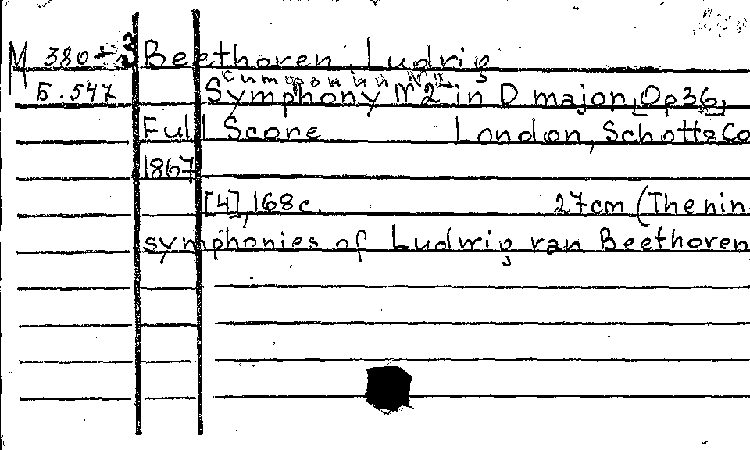 М 380-3 Beethoven, Ludvig
Симфония №2
Б.547 Symphony N2 in D major, Op36,
Full Score London, Schott&Co
1867
[4], 168c. 27cm (The nin
symphonies of Ludwig van Beethoven